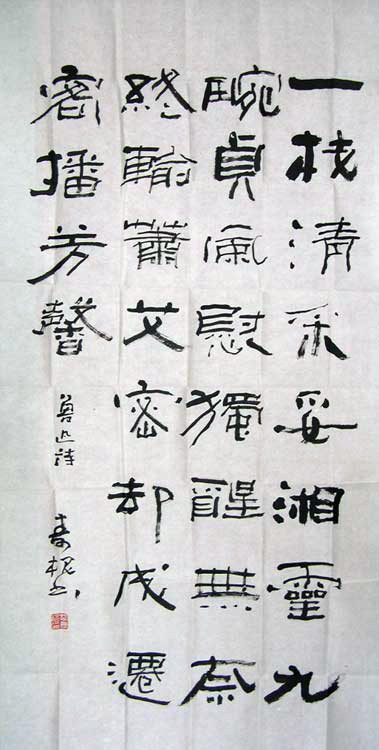 一枝清采妥湘靈九
畹貞風慰獨醒無奈
終輸蕭艾密却成遷
客播芳馨
魯迅詩